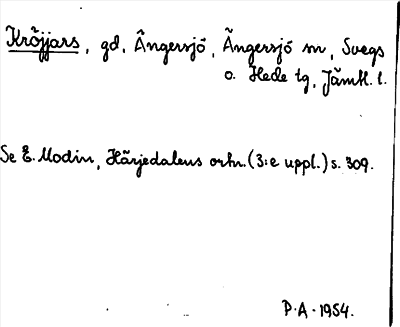 Kröjjars, gd, Ängersjö, Ängersjö sn, Svegs
o. Hede tg, Jämtl. l.
Se E. Modin, Härjedalens orhn. (3:e uppl.) s. 309.
P.A. 1954.